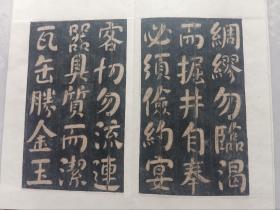 綢繆勿臨渴
而掘井自奉
必須儉約宴
客切勿流連
器具質而潔
瓦缶勝金玉